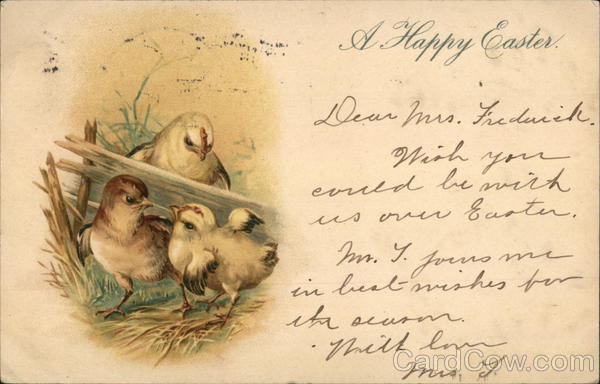 A Happy Easter.
Dear Mrs. Frederick.
Wish you
could be with
us over Easter.
Mr. T. joins me
in best wishes for
the season.
With love
Mrs. T.
CardCow.com